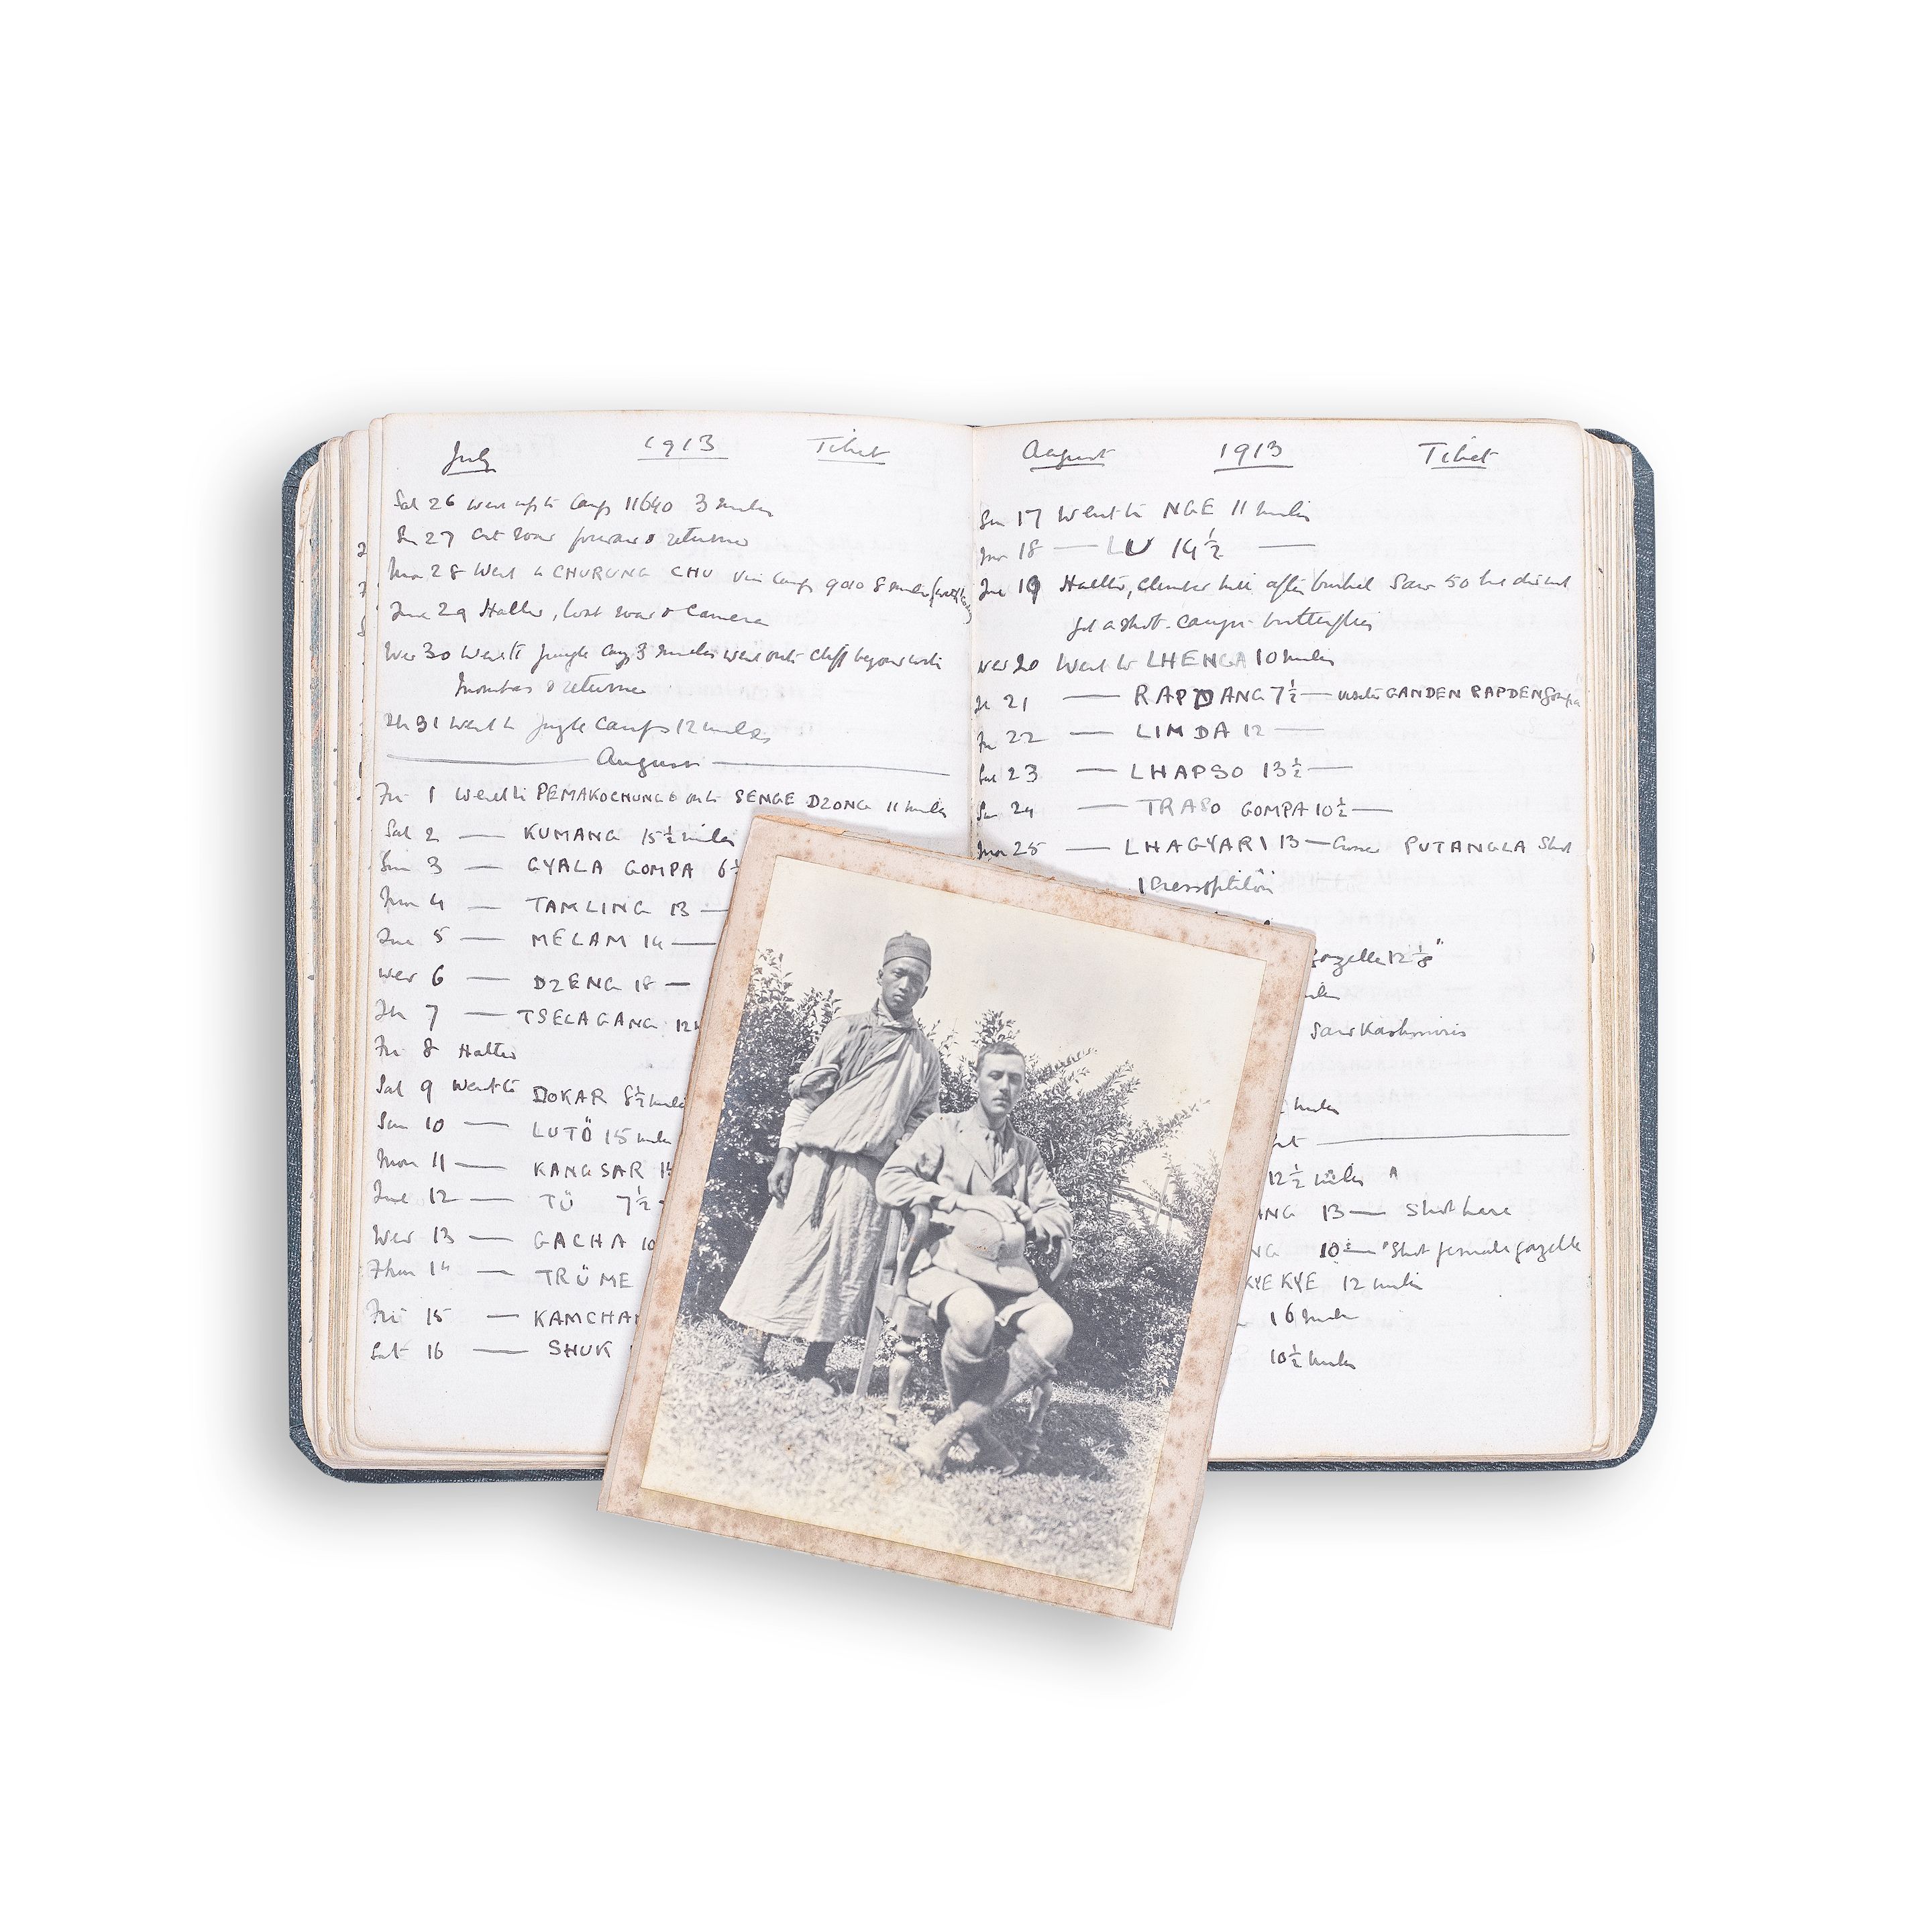 July 1913 Tibet
Sat 26 went up to Camp 11640 3 miles
Sun 27 Cut road forward & returned
Mon 28 Went to CHURUNG CHU via Camp 9010 8 miles
Tue 29 Halted, lost road & Camera
Wed 30 Went to jungle Camp 3 miles went onto cliff beyond with
Monbas & returned
Th 31 Went to Jungle Camp 12 miles
August
Fri 1 Went to PEMAKOCHUNG & onto SENGE DZONG 11 miles
Sat 2 — KUMANG 15½ miles
Sun 3 — GYALA GOMPA 6½
Mon 4 — TAMLING 13 —
Tue 5 — MELAM 14 —
Wed 6 — DZENG 18 —
Th 7 — TSELAGANG 12
Fri 8 Halted
Sat 9 Went to DOKAR 8½ miles
Sun 10 — LUTÖ 15 miles
Mon 11 — KANGSAR
Tue 12 — TÜ 7½
Wed 13 — GACHA 10
Thu 14 — TRÜME
Fri 15 — KAMCHA
Sat 16 — SHUK
August 1913 Tibet
Sun 17 Went to NGE 11 miles
Mon 18 — LU 14½ —
Tue 19 Halted, climbed hill after burhel Saw 50 but did not
get a shot. Caught butterflies
Wed 20 Went to LHENGA 10 miles
Th 21 — RAPDANG 7½ — visited GANDEN RAPDEN Gompa
Fri 22 — LIMDA 12 —
Sat 23 — LHAPSO 13½ —
Sun 24 — TRASO GOMPA 10½ —
Mon 25 — LHAGYARI 13 — Crossed PUTANGLA Shot
1 Crossoptilon
gazelle 12⅛"
miles
Saw Kashmiris
miles
12½ miles
ANG 13 — Shot hare
NG 10½ — Shot female gazelle
KYE KYE 12 miles
16 miles
10½ miles